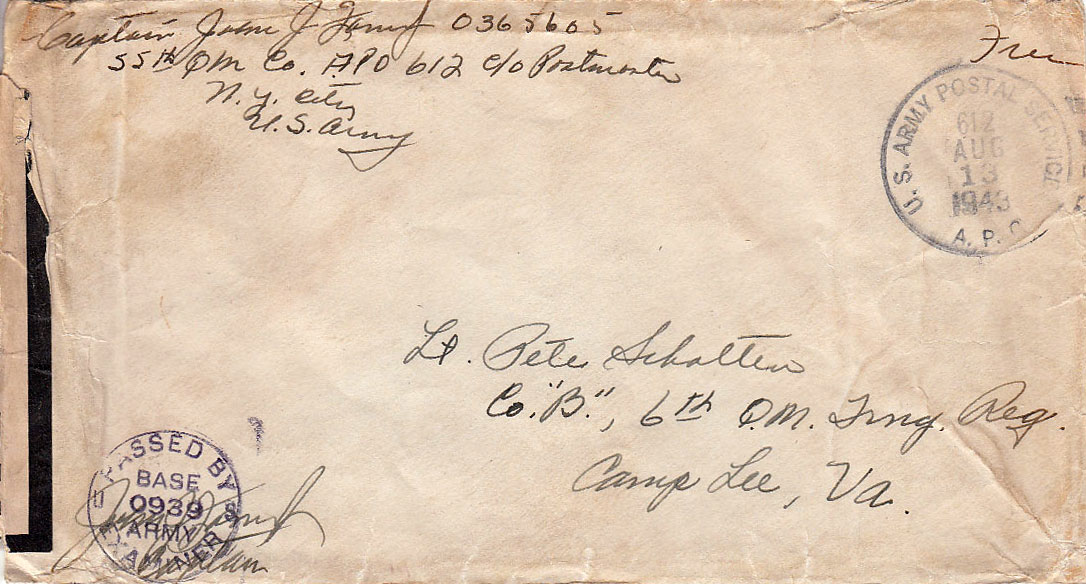 Captain J. 0365605
55th QM Co. APO 612 c/o Postmaster
N.Y. City
U.S. Army
Free
U.S. ARMY POSTAL SERVICE
612
AUG
13
1943
A. P. O.
Lt. Pete Scholten
Co. "B", 6th Q.M. Trng. Reg.
Camp Lee, Va.
PASSED BY
BASE
0939
ARMY
EXAMINER
Captain